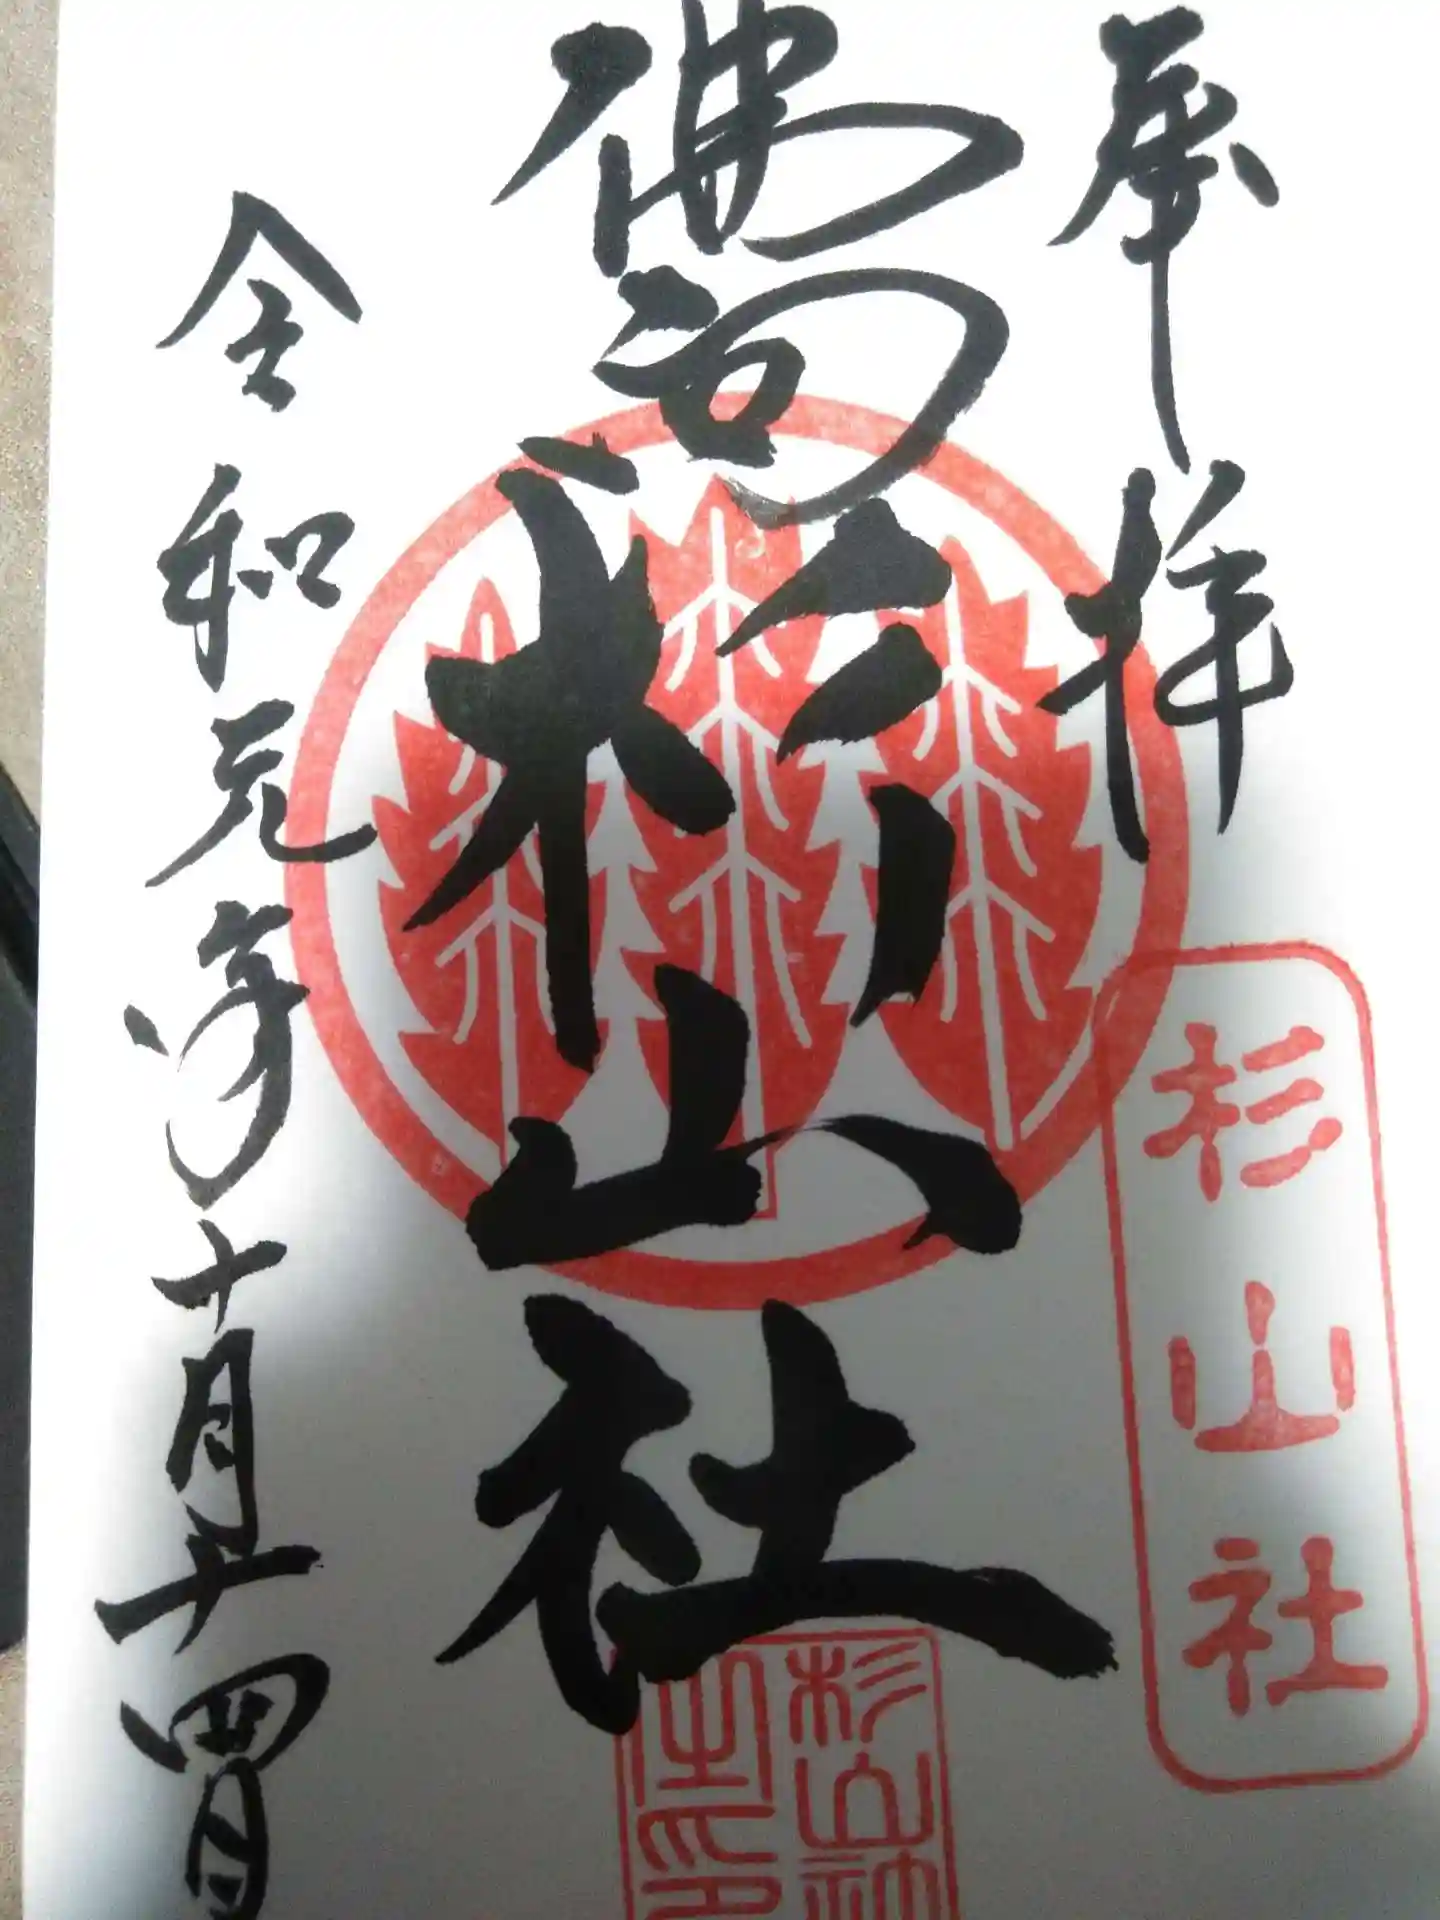 奉拝
杉山社
佛向
杉山社
杉山神
之印
令和元年十月十四日